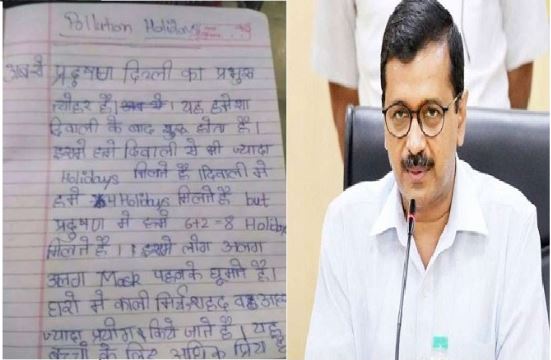 Pollution Holidays
अबसे प्रदूषण दिल्ली का प्रमुख
त्योहार है। यह हमेशा
दिवाली के बाद शुरू होता है।
इसमे हमे दिवाली से भी ज्यादा
Holidays मिलते है। दिवाली मे
हमे 4 Holidays मिलते है but
प्रदूषण मे हमे 6+2=8 Holidays
मिलते है। इसमे लोग अलग
अलग Mask पहनके घूमते है।
घरो मे काली मिर्च, शहद व
ज्यादा प्रयोग किये जाते है। यह
बच्चो के लिए अधिक प्रिय